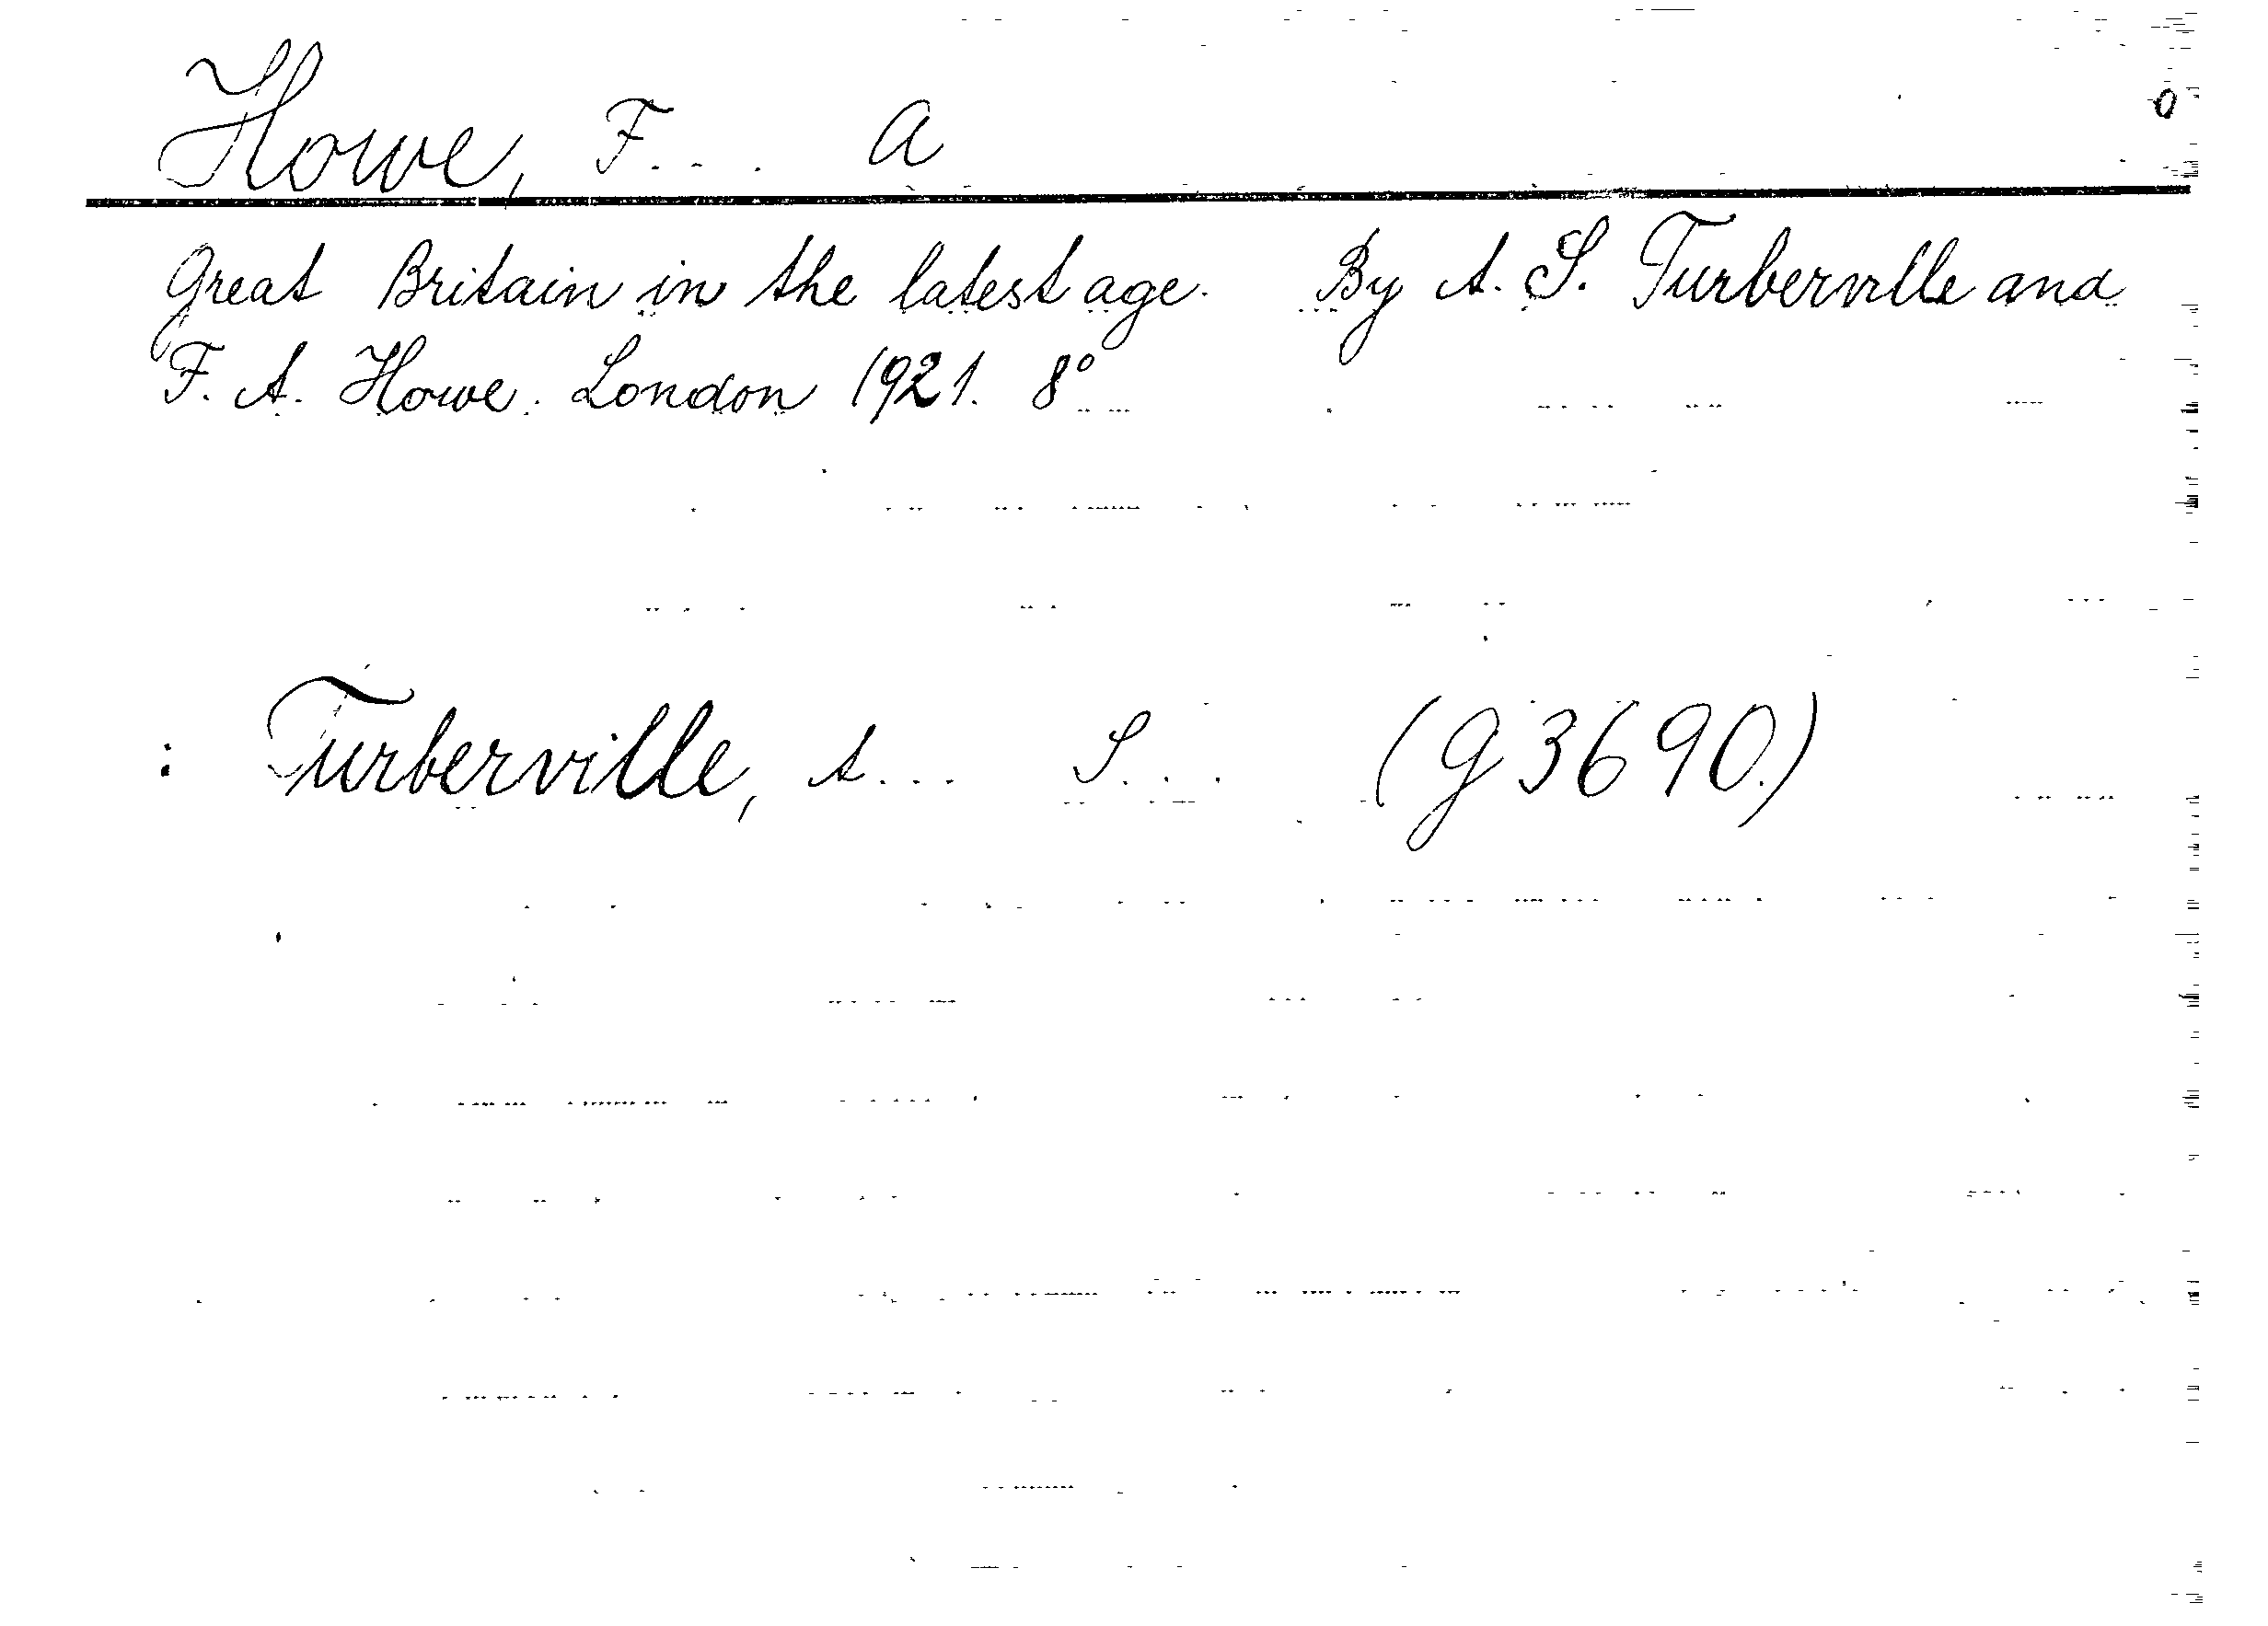 Howe, F... A
Great Britain in the latest age. By A. S. Turberville and
F. A. Howe. London 1921. 8°
: Turberville, A... S... (G 3690.)